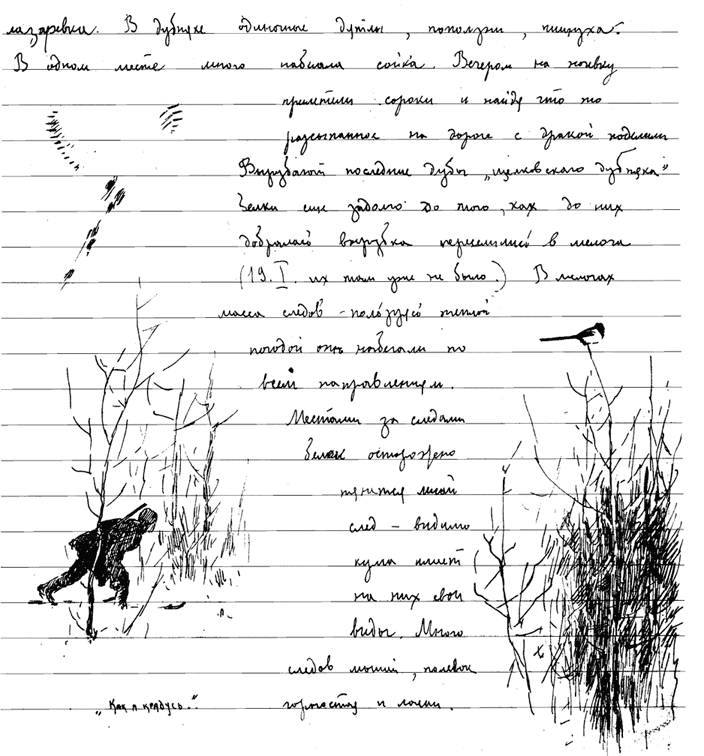 лазаревки. В дубняке одиночные дятлы, поползни, пищуха.
В одном месте много набегала сойка. Вечером на ночевку
прилетели сороки и найдя что то
рассыпанное на дороге с дракой поделили
Вырубают последние дубы „щелковского дубняка"
Белки еще задолго до того, как до них
добралась вырубка переселились в мелоча
(19.I. их там уже не было.) В мелочах
масса следов - пользуясь теплой
погодой они набегали по
всем направлениям.
Местами за следами
белок осторожно
тянется лисий
след – видимо
кума имеет
на них свои
виды. Много
следов мышей, полевок
горностая и ласки.
„Как я крадусь."